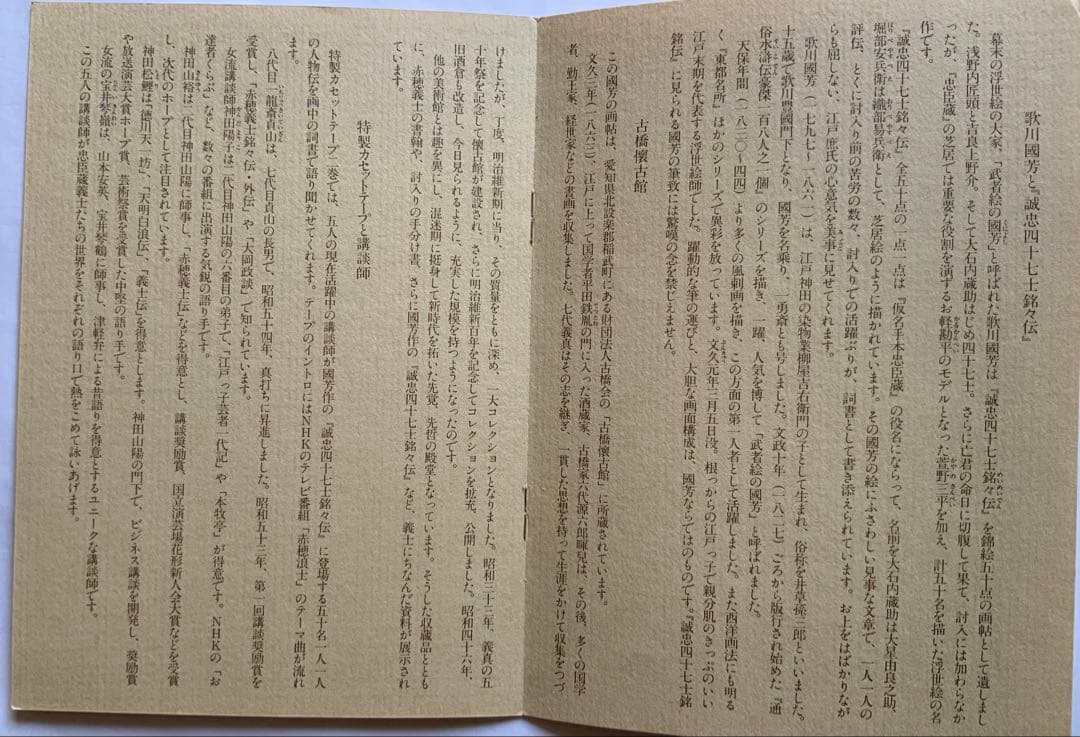 歌川國芳と『誠忠四十七士銘々伝』
幕末の浮世絵の大家、「武者絵の國芳」と呼ばれた歌川國芳は『誠忠四十七士銘々伝』を錦絵五十点の画帖として遺しまし
た。浅野内匠頭と吉良上野介、そして大石内蔵助はじめ四十七士。さらに亡君の命日に切腹して果て、討入には加わらなか
ったが、『忠臣蔵』の芝居では重要な役割を演ずるお軽勘平のモデルとなった萱野三平を加え、計五十名を描いた浮世絵の名
作です。
『誠忠四十七士銘々伝』全五十点の一点一点は『仮名手本忠臣蔵』の役名にならって、名前を大石内蔵助は大星由良之助、
堀部安兵衛は織部易兵衛として、芝居絵のように描かれています。その國芳の絵にふさわしい見事な文章で、一人一人の
評伝、とくに討入り前の苦労の数々、討入りでの活躍ぶりが、詞書として書き添えられています。お上をはばかりなが
らも屈しない、江戸庶民の心意気を美事に見せてくれます。
歌川國芳(一七九七〜一八六一)は、江戸神田の染物業柳屋吉右衛門の子として生まれ、俗称を井草孫三郎といいました。
十五歳で歌川豊國門下となり、國芳を名乗り、一勇斎とも号しました。文政十年(一八二七)ごろから版行され始めた『通
俗水滸伝豪傑一百八人之一個』のシリーズを描き、一躍、人気を博して「武者絵の國芳」と呼ばれました。
天保年間(一八三〇〜四四)より多くの風刺画を描き、この方面の第一人者として活躍しました。また西洋画法にも明る
く、『東都名所』ほかのシリーズで異彩を放っています。文久元年三月五日没。根っからの江戸っ子で親分肌のきっぷのいい
江戸末期を代表する浮世絵師でした。躍動的な筆の運びと、大胆な画面構成は、國芳ならではのものです。『誠忠四十七士銘
銘伝』に見られる國芳の筆致には驚嘆の念を禁じえません。
古橋懐古館
この國芳の画帖は、愛知県北設楽郡稲武町にある財団法人古橋会の「古橋懐古館」に所蔵されています。
文久三年(一八六三)、江戸に上って国学者平田鉄胤の門に入った酒蔵家、古橋家六代源六郎暉皃は、その後、多くの国学
者、勤王家、経世家などの書画を収集しました。七代義真はその志を継ぎ、一貫した思想を持って生涯をかけて収集をつづ
けましたが、丁度、明治維新期に当り、その質量をともに深め、一大コレクションとなりました。昭和二十三年、義真の五
十年祭を記念して懐古館が建設され、さらに明治維新百年を記念してコレクションを拡充、公開しました。昭和四十六年、
旧酒倉も改造し、今日見られるように、充実した規模を持つようになったのです。
他の美術館とは趣を異にし、混迷期に挺身して新時代を拓いた先覚、先哲の殿堂となっています。そうした収蔵品ととも
に、赤穂義士の書翰や、討入りの手分け書、さらに國芳作の『誠忠四十七士銘々伝』など、義士にちなんだ資料が展示され
ています。
特製カセットテープと講談師
特製カセットテープ二巻では、五人の現在活躍中の講談師が國芳作の『誠忠四十七士銘々伝』に登場する五十名一人一人
の人物伝を画中の詞書で語り聞かせてくれます。テープのイントロにはNHKのテレビ番組「赤穂浪士」のテーマ曲が流れ
ます。
八代目一龍斎貞山は、七代目貞山の長男で、昭和五十四年、真打ちに昇進しました。昭和五十三年、第一回講談奨励賞を
受賞し、「赤穂義士銘々伝・外伝」や「大岡政談」で知られています。
女流講談師神田陽子は二代目神田山陽の六番目の弟子で、「江戸っ子芸者一代記」や「本牧亭」が得意です。NHKの「お
達者くらぶ」など、数々の番組に出演する気鋭の語り手です。
神田山裕は二代目神田山陽に師事し、「赤穂義士伝」などを得意とし、講談奨励賞、国立演芸場花形新人会大賞などを受賞
し、次代のホープとして注目されています。
神田松鯉は「徳川天一坊」、「天明白浪伝」、「義士伝」を得意とします。神田山陽の門下で、ビジネス講談を開発し、奨励賞
や放送演芸大賞ホープ賞、芸術祭賞を受賞した中堅の語り手です。
女流の宝井琴嶺は、山本安英、宝井琴鶴に師事し、津軽弁による昔語りを得意とするユニークな講談師です。
この五人の講談師が忠臣蔵義士たちの世界をそれぞれの語り口で熱をこめて詠いあげます。